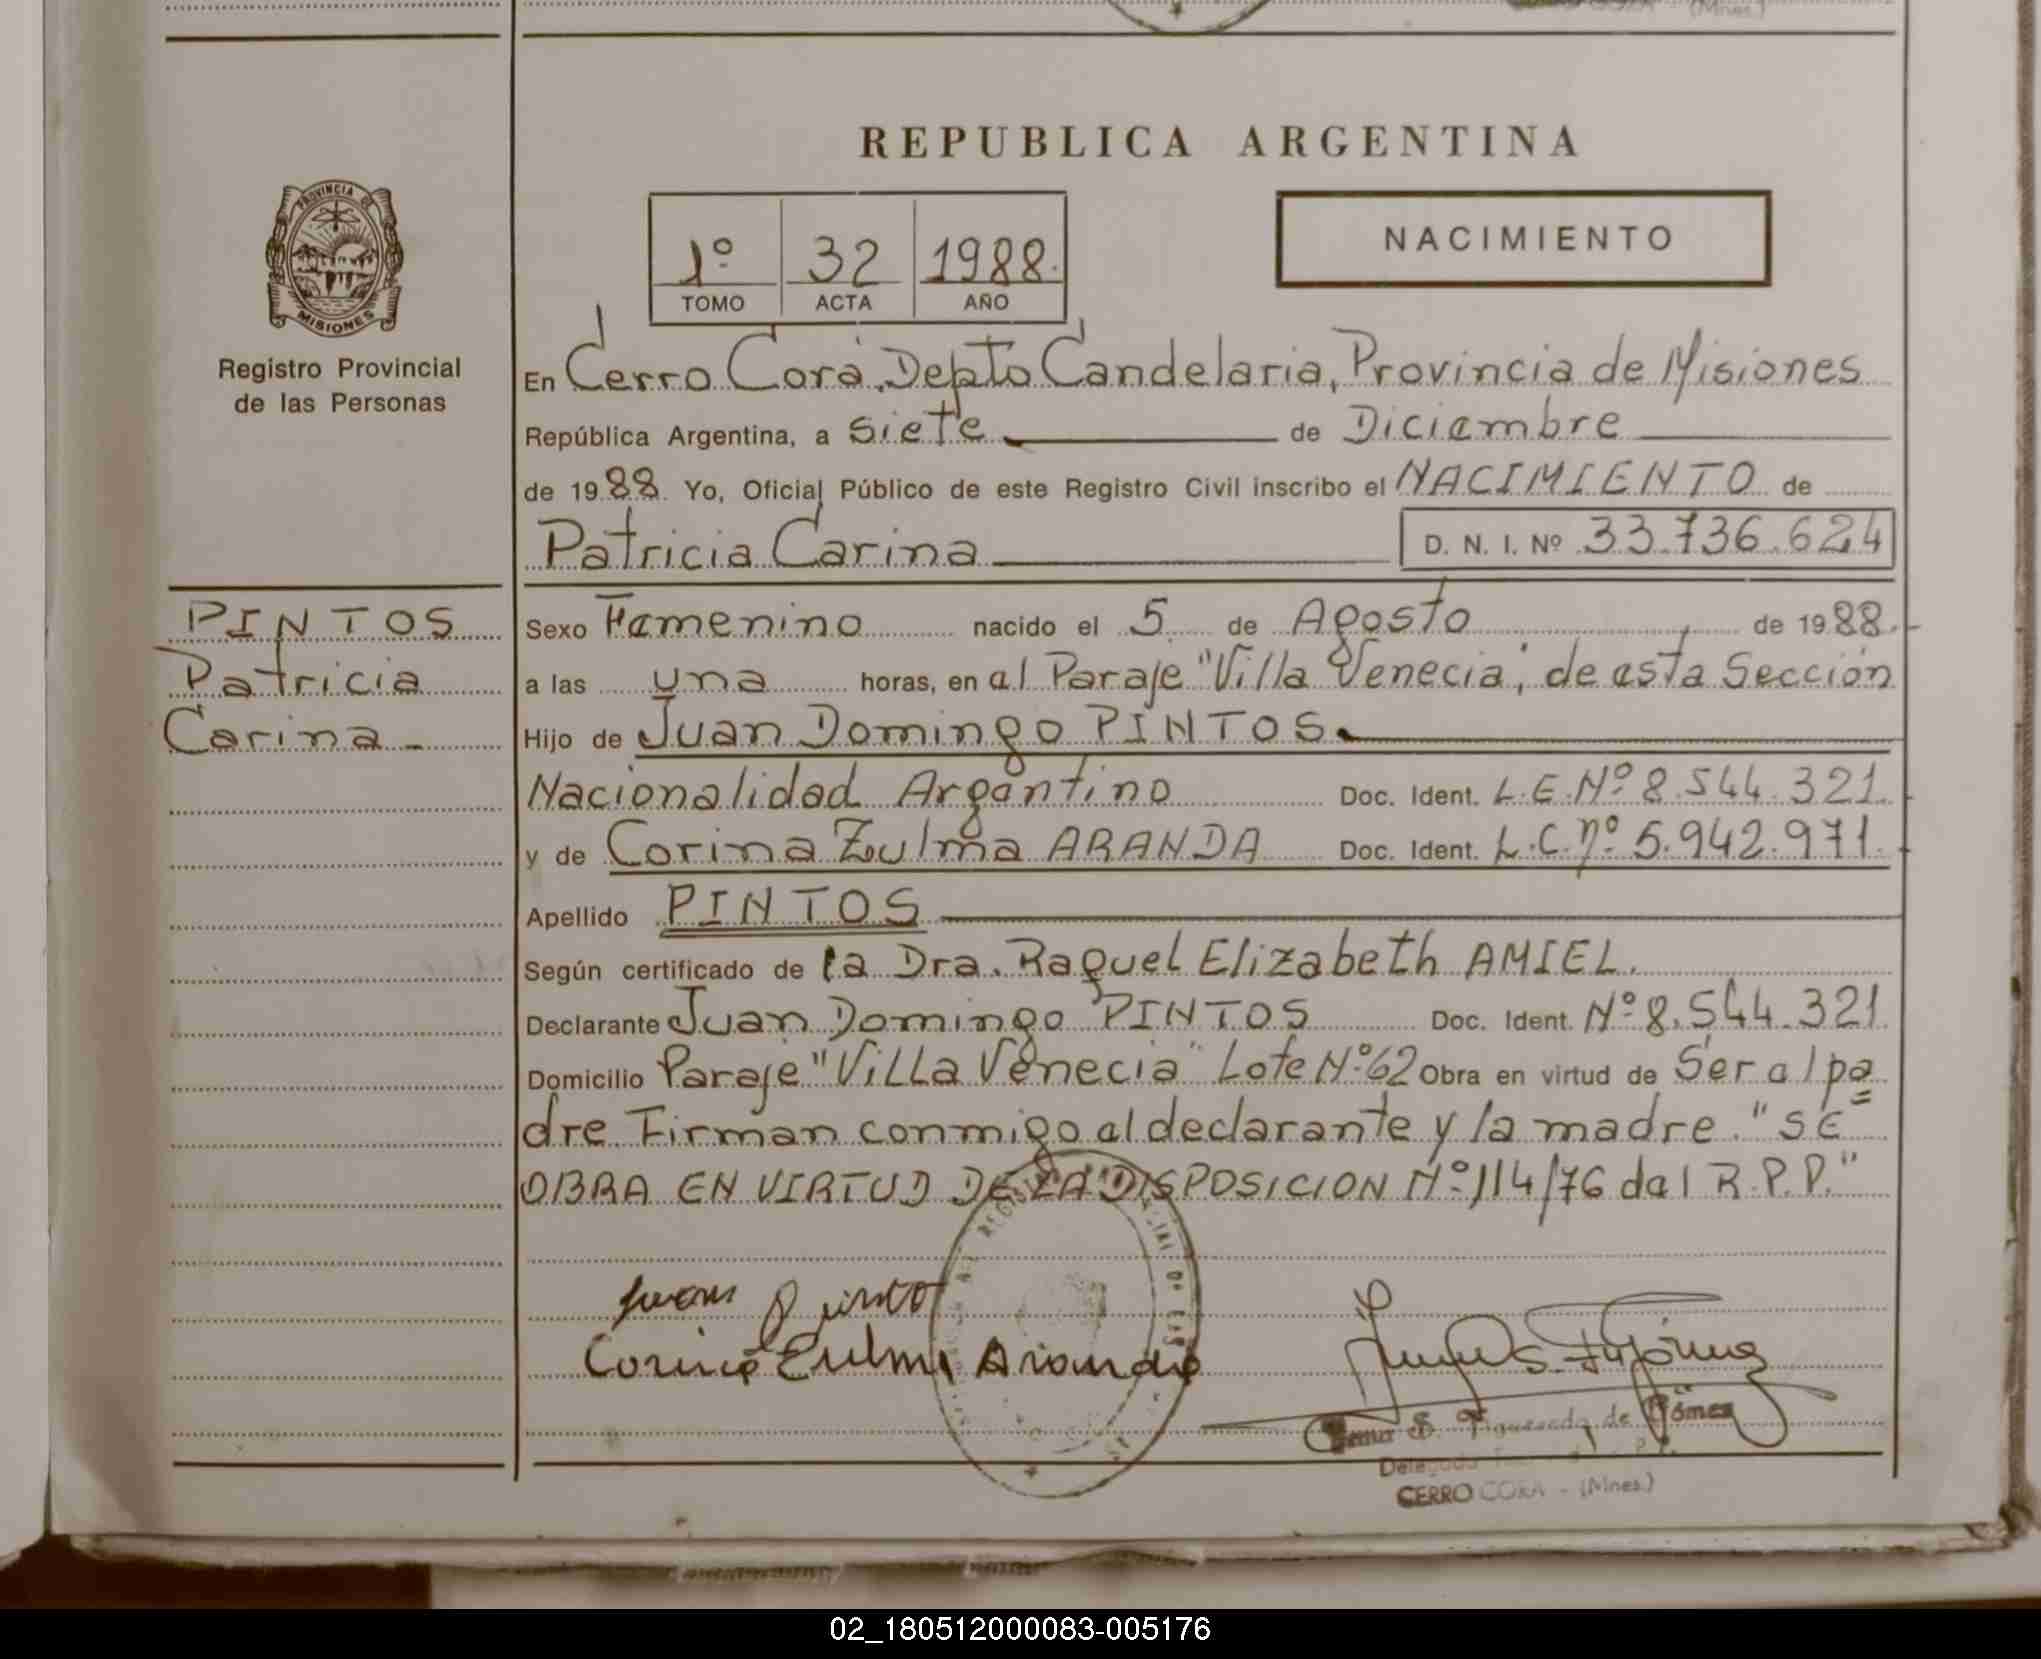 (Mnes.)
REPUBLICA ARGENTINA
PROVINCIA DE
MISIONES
Registro Provincial
de las Personas
1º 32 1988.
TOMO ACTA AÑO
NACIMIENTO
En Cerro Corá, Depto Candelaria, Provincia de Misiones
República Argentina, a siete de Diciembre
de 1988. Yo, Oficial Público de este Registro Civil inscribo el NACIMIENTO de
Patricia Carina D. N. I. Nº 33.736.624
PINTOS
Patricia
Carina -
Sexo Femenino nacido el 5 de Agosto de 1988.
a las una horas, en el Paraje "Villa Venecia", de esta Sección
Hijo de Juan Domingo PINTOS.
Nacionalidad Argentino Doc. Ident. L.E.Nº 8.544.321.
y de Corina Zulma ARANDA Doc. Ident. L.C.nº 5.942.971.
Apellido PINTOS
Según certificado de la Dra. Raquel Elizabeth AMIEL.
Declarante Juan Domingo PINTOS Doc. Ident. Nº 8.544.321
Domicilio Paraje "Villa Venecia" Lote Nº 62 Obra en virtud de Ser el pa=
dre Firman conmigo el declarante y la madre. "SE
OBRA EN VIRTUD DE LA DISPOSICION Nº 114/76 del R.P.P."
Juan Pinto
Corina Zulma Aranda
S. Figueredo de Gómez
CERRO CORA - (Mnes.)
02_180512000083-005176